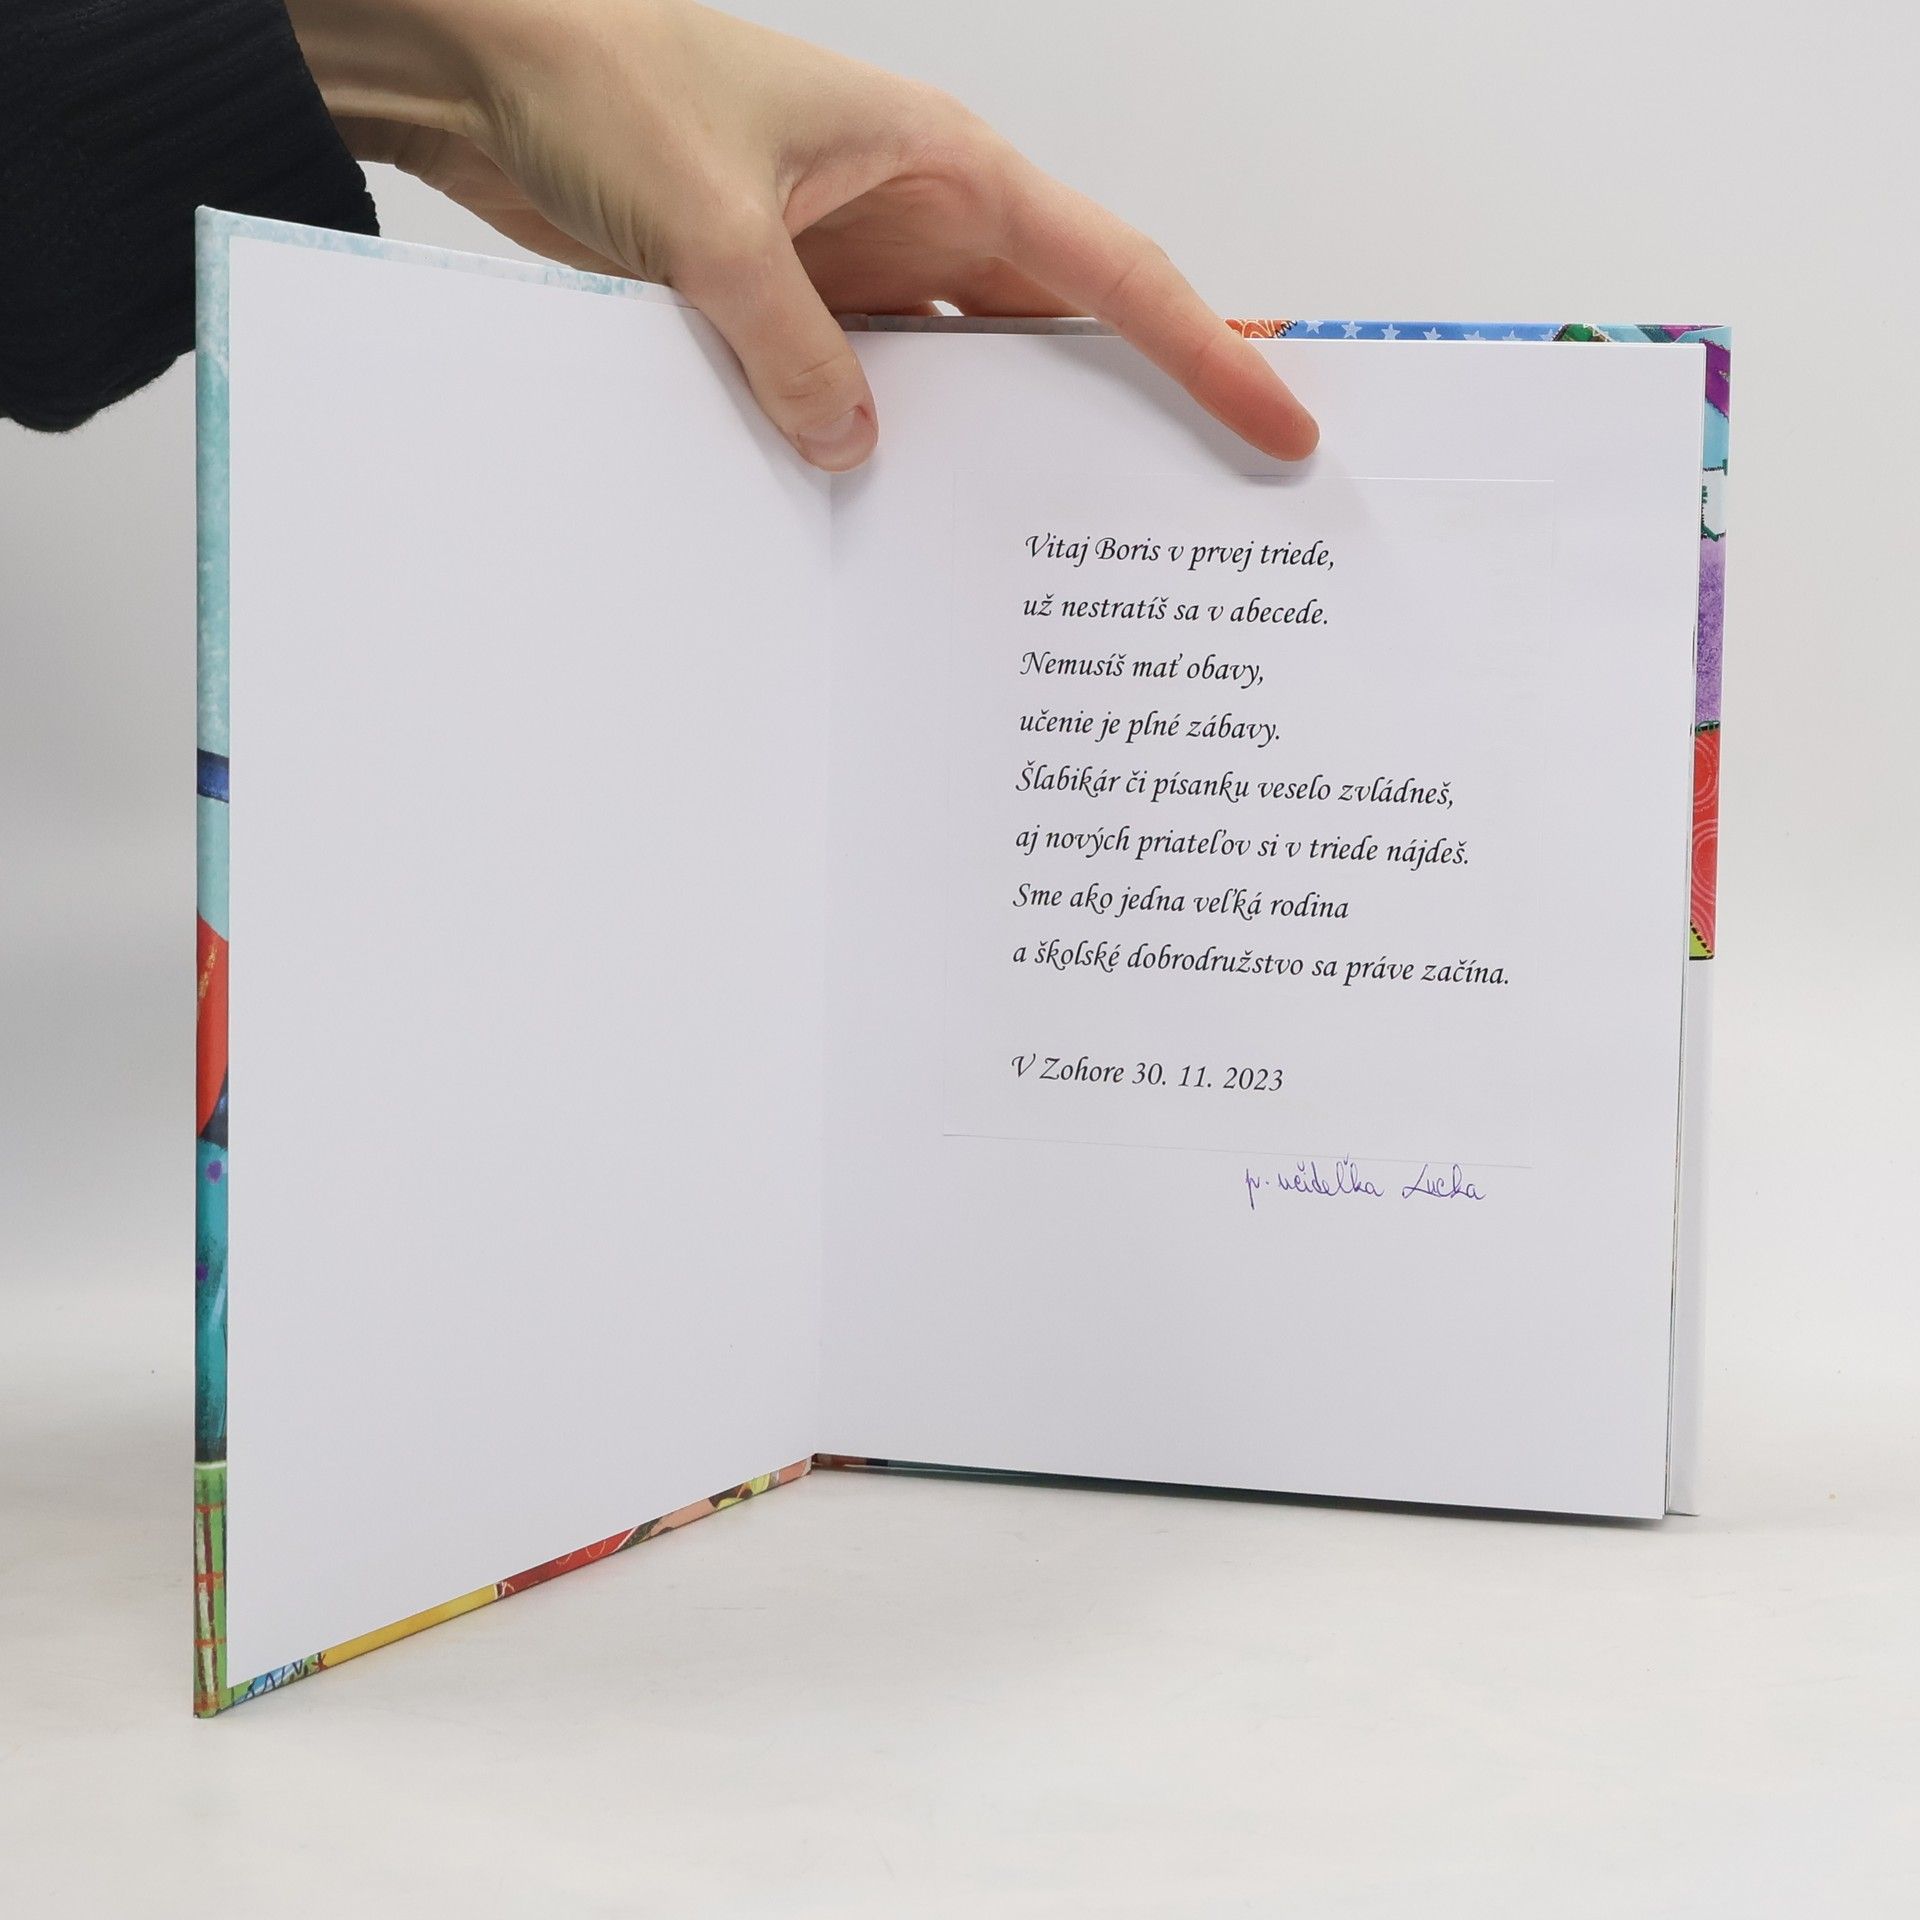 Vitaj Boris v prvej triede,
už nestratíš sa v abecede.
Nemusíš mať obavy,
učenie je plné zábavy.
Šlabikár či písanku veselo zvládneš,
aj nových priateľov si v triede nájdeš.
Sme ako jedna veľká rodina
a školské dobrodružstvo sa práve začína.
V Zohore 30. 11. 2023
p. učiteľka Lucka